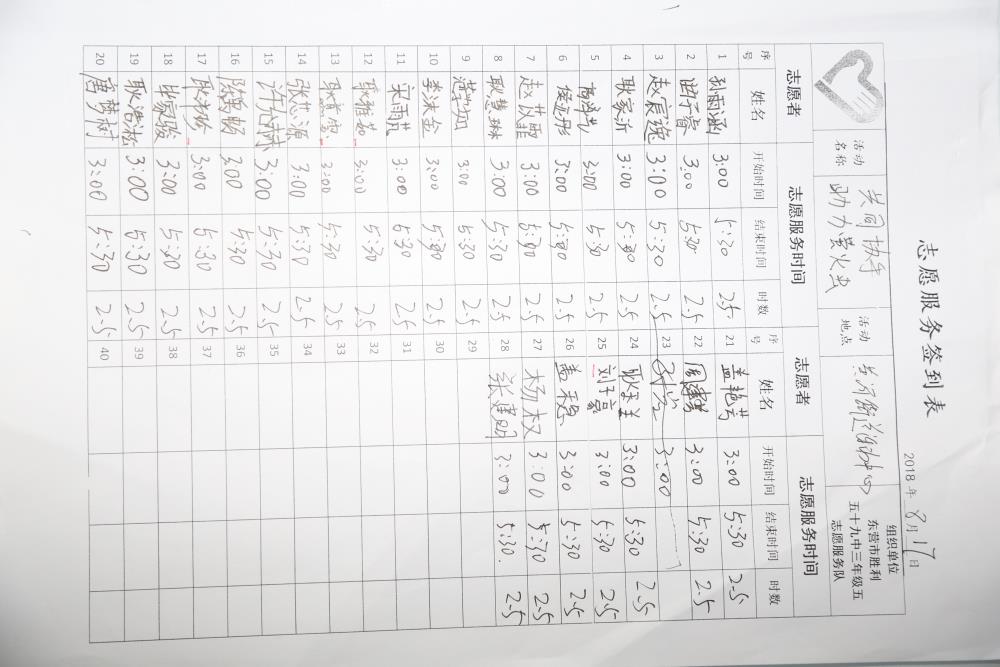 志愿服务签到表
2018年8月17日
活动名称 共同协手助力萤火虫 活动地点 组织单位 东营市胜利五十九中三年级五志愿服务队
志愿者 志愿服务时间 志愿者 志愿服务时间
序号 姓名 开始时间 结束时间 时数 序号 姓名 开始时间 结束时间 时数
1 3:00 5:30 2.5 21 盖艳芳 3:00 5:30 2.5
2 田子睿 3:00 5:30 2.5 22 3:00 5:30 2.5
3 赵宸逸 3:00 5:30 2.5 23 3:00
4 耿家沂 3:00 5:30 2.5 24 3:00 5:30 2.5
5 3:00 5:30 2.5 25 刘子豪 3:00 5:30 2.5
6 3:00 5:30 2.5 26 盖稳 3:00 5:30 2.5
7 3:00 5:30 2.5 27 杨权 3:00 5:30 2.5
8 耿慧琳 3:00 5:30 2.5 28 张建明 3:00 5:30. 2.5
9 3:00 5:30 2.5 29
10 李沫金 3:00 5:30 2.5 30
11 宋雨芹 3:00 5:30 2.5 31
12 3:00 5:30 2.5 32
13 3:00 5:30 2.5 33
14 张慈源 3:00 5:30 2.5 34
15 3:00 5:30 2.5 35
16 陈禹畅 3:00 5:30 2.5 36
17 3:00 5:30 2.5 37
18 3:00 5:30 2.5 38
19 耿浩淞 3:00 5:30 2.5 39
20 唐梦树 3:00 5:30 2.5 40